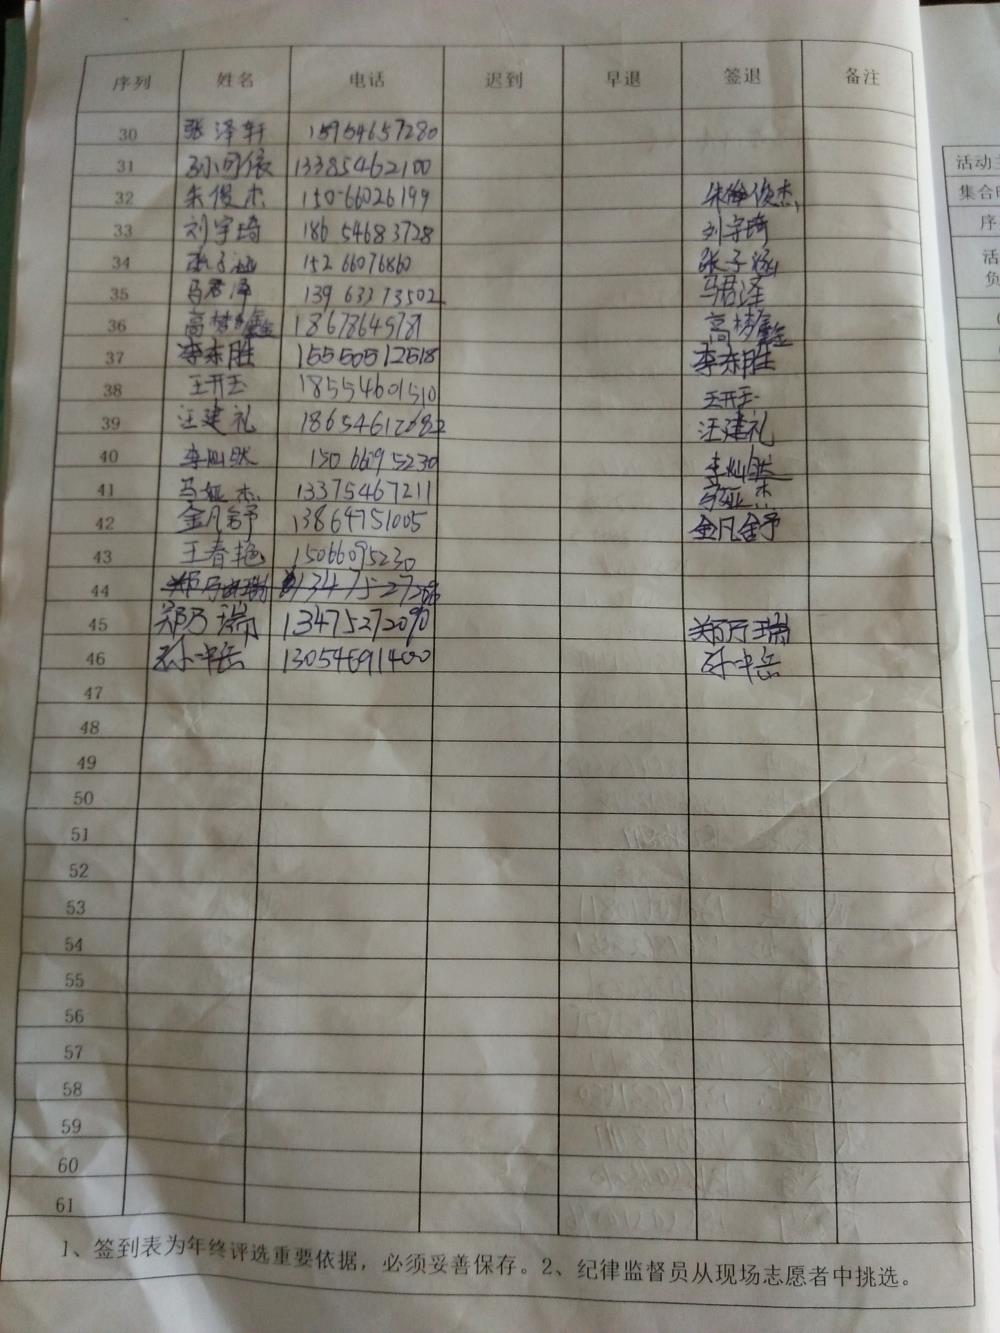 序列 姓名 电话 迟到 早退 签退 备注
30 张泽轩 15954657280
31 孙可依 13385462100
32 朱俊杰 15066026199 朱俊杰
33 刘宇琦 18654683728 刘宇琦
34 张子涵 15266076860 张子涵
35 马君泽 13963373502 马君泽
36 高梦鑫 18678649781 高梦鑫
37 李东胜 15550512518 李东胜
38 王开玉 18554601510 王开玉
39 汪建礼 18654612682 汪建礼
40 李灿然 1506695230 李灿然
41 马娅杰 13375467211 马娅杰
42 金凡舒 13864751005 金凡舒
43 王春艳 15066095230
44
45 郑乃瑞 13475272090 郑乃瑞
46 孙中岳 13054691400 孙中岳
47
48
49
50
51
52
53
54
55
56
57
58
59
60
61
1、签到表为年终评选重要依据，必须妥善保存。2、纪律监督员从现场志愿者中挑选。
活动
集合
序
活
负